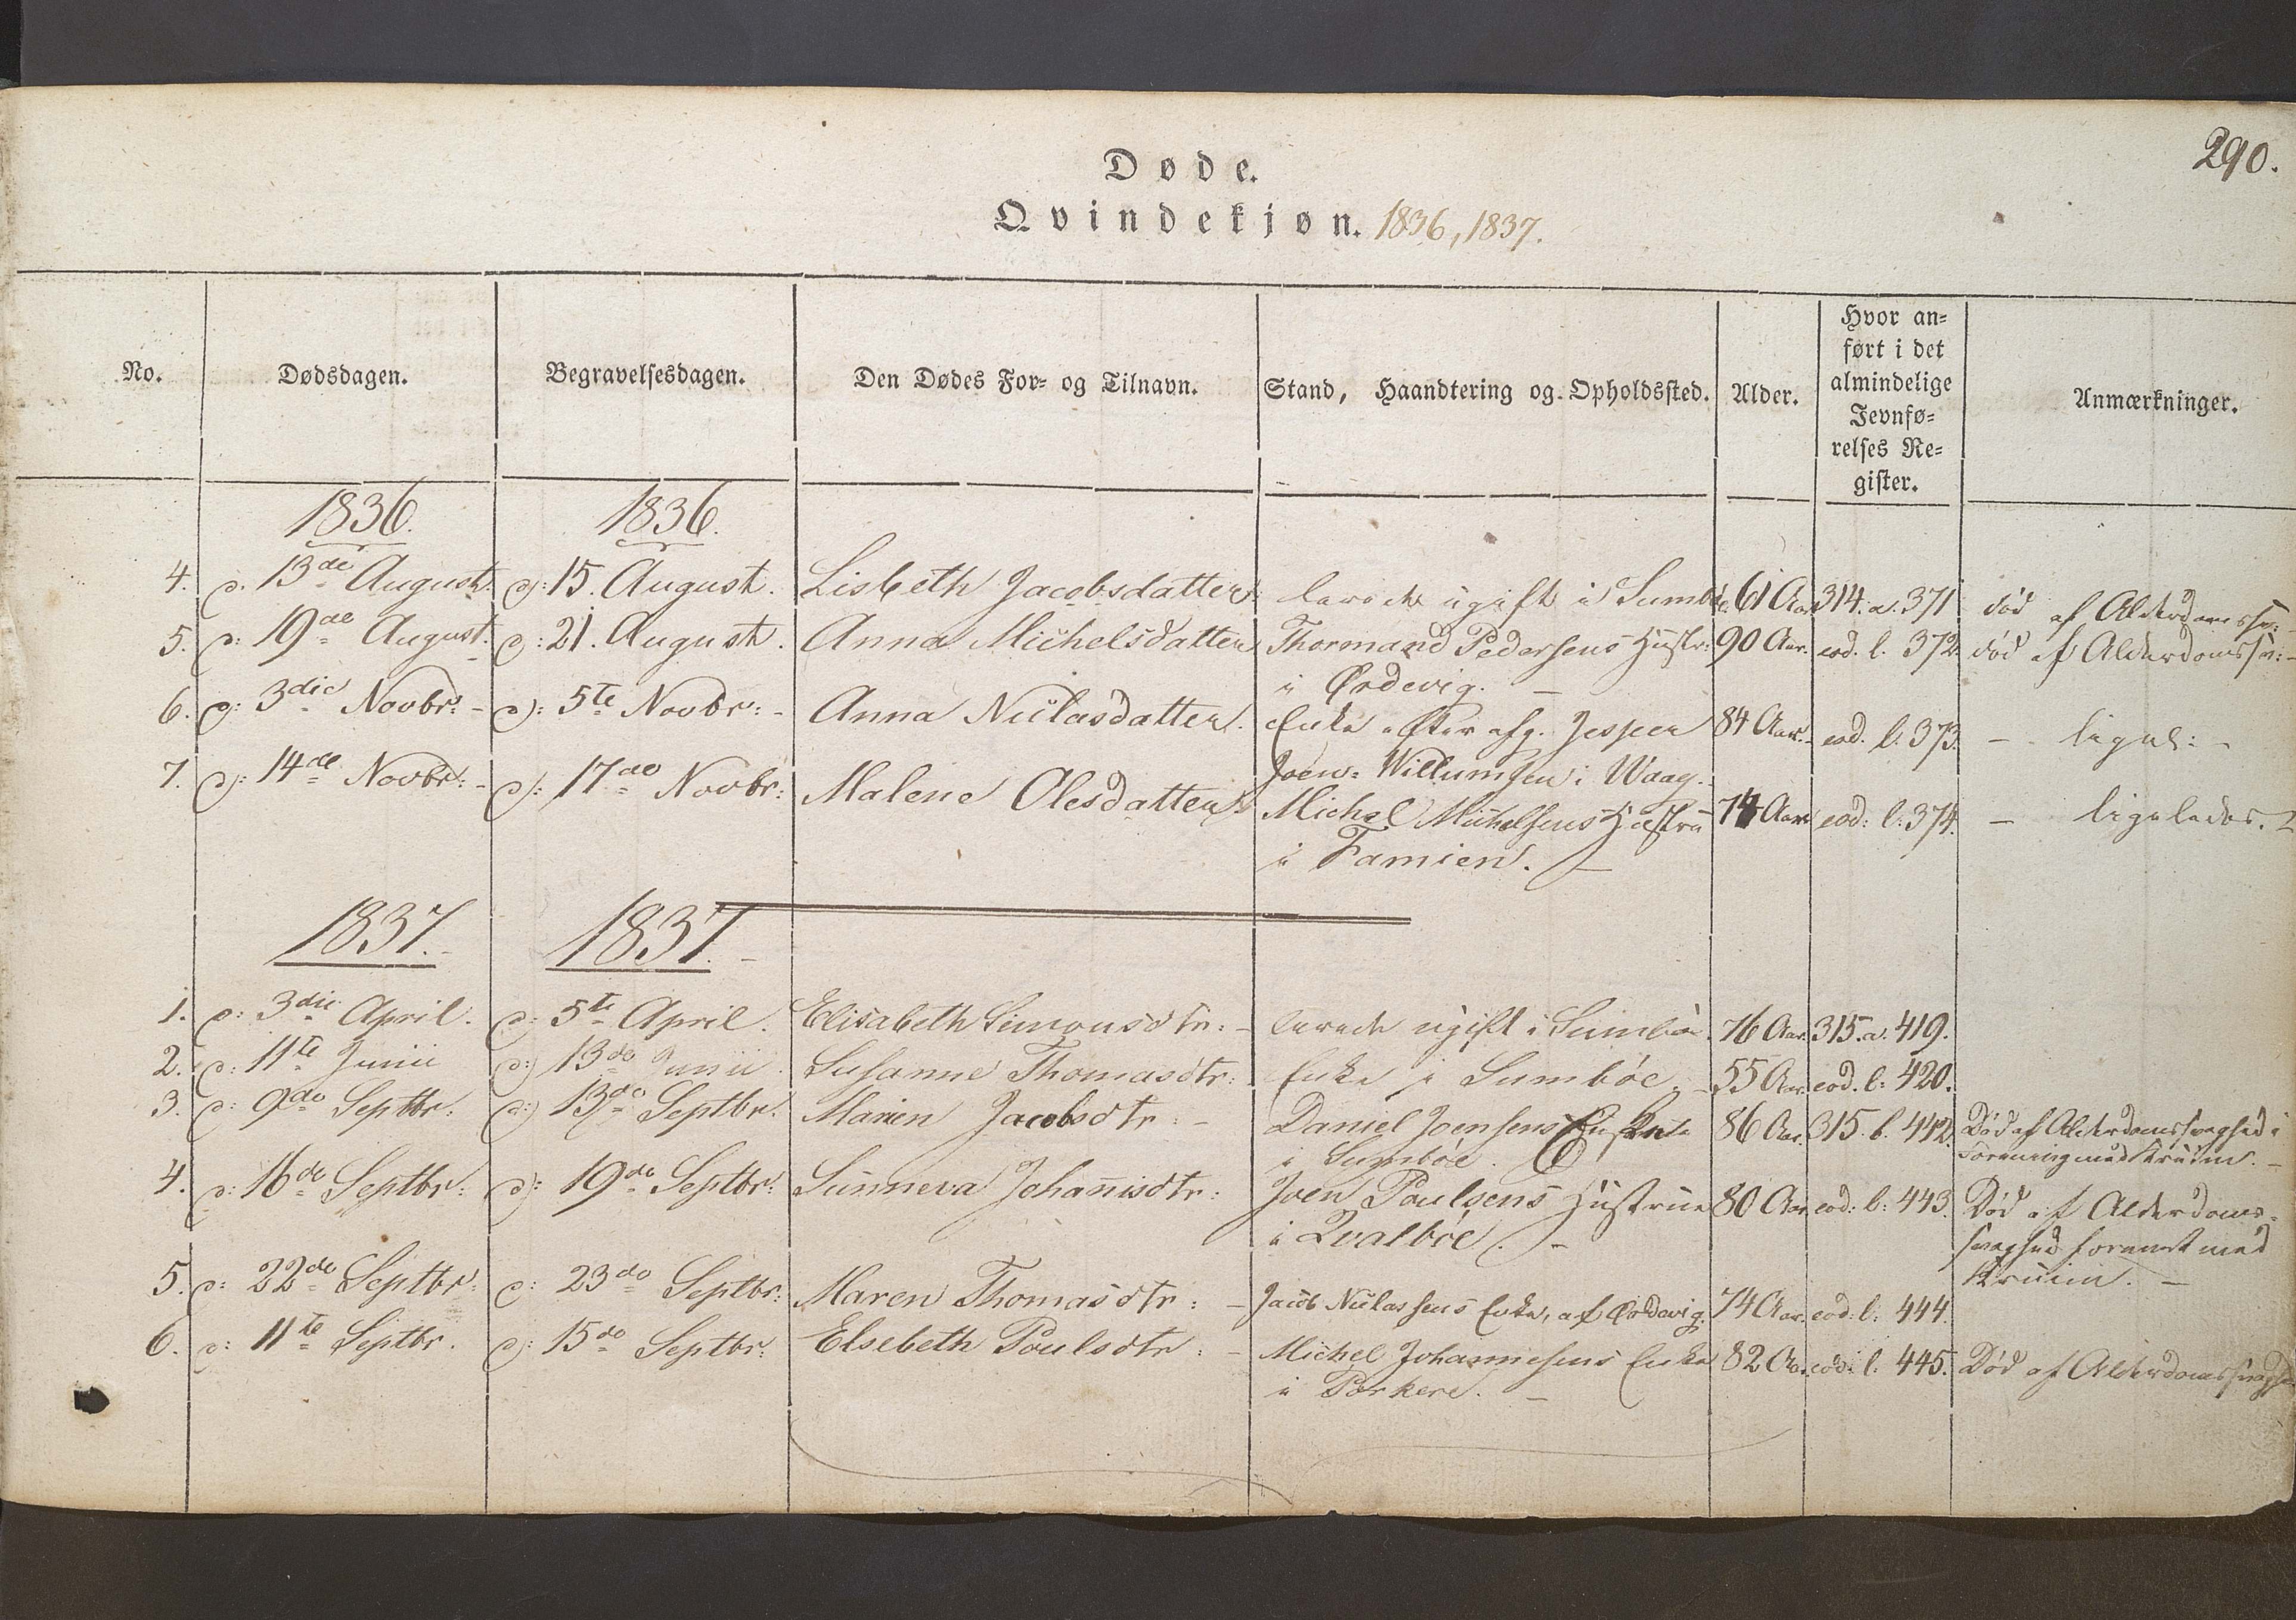 290.
Døde.
Qvindekjøn. 1836, 1837.
No. Dødsdagen. Begravelsesdagen. Den Dødes For- og Tilnavn. Stand, Haandtering og Opholdssted. Alder. Hvor an-
ført i det
almindelige
Jevnfø-
relses Re-
gister. Anmærkninger.
1836. 1836.
4. d. 13de August. d: 15. August. Lisbeth Jacobsdatter levede ugift i Sumbøe. 61 Aar 314. a. 371 død af Alderdomssv:
5. d: 19de August. d: 21. August. Anna Michelsdatter Thormand Pedersens Hustr: 90 Aar. eod. l. 372 død af Alderdomssv:-
i Ørdevig. -
6. d: 3die Novbr: - d: 5te Novbr: - Anna Niclasdatter. Enke efter afg. Jesper 84 Aar. eod. l. 373. - ligel: -
Joen: Willumsen i Waag.
7. d: 14de Novbr: - d: 17de Novbr: Malene Olesdatter Michel Michelsens Hustru 74 Aar eod: l: 374. - ligeledes.
i Famien. -
1837. - 1837. -
1. d: 3die April. d: 5te April. Elisabeth Simonsdtr: - levede ugift i Sumbøe. 76 Aar. 315. a. 419.
2. d: 11te Junii d: 13de Junii. Susanne Thomasdtr: Enke i Sumbøe. - 55 Aar. eod. l: 420.
3. d: 9de Septbr. d: 13de Septbr. Maren Jacobsdtr: - Daniel Joensens Enke 86 Aar. 315. b. 442. Død af Alderdomssvaghed i
i Sumbøe. Forening med Kruim. -
4. d: 16de Septbr: d: 19de Septbr: Sunneva Johanisdtr: Joen Poulsens Hustrue 80 Aar. eod: l: 443. Død af Alderdoms-
i Qvalbøe. - svaghed forenet med
Kruim. -
5. d: 22de Septbr: d: 23de Septbr: Maren Thomasdtr: - Jacob Niclassens Enke, af Ørdevig. 74 Aar. eod: l: 444.
6. d: 11te Septbr. d: 15de Septbr: Elsebeth Poulsdtr: - Michel Johannesens Enke 82 Aar. eod: l: 445. Død af Alderdomssvaghed
i Porkere. -